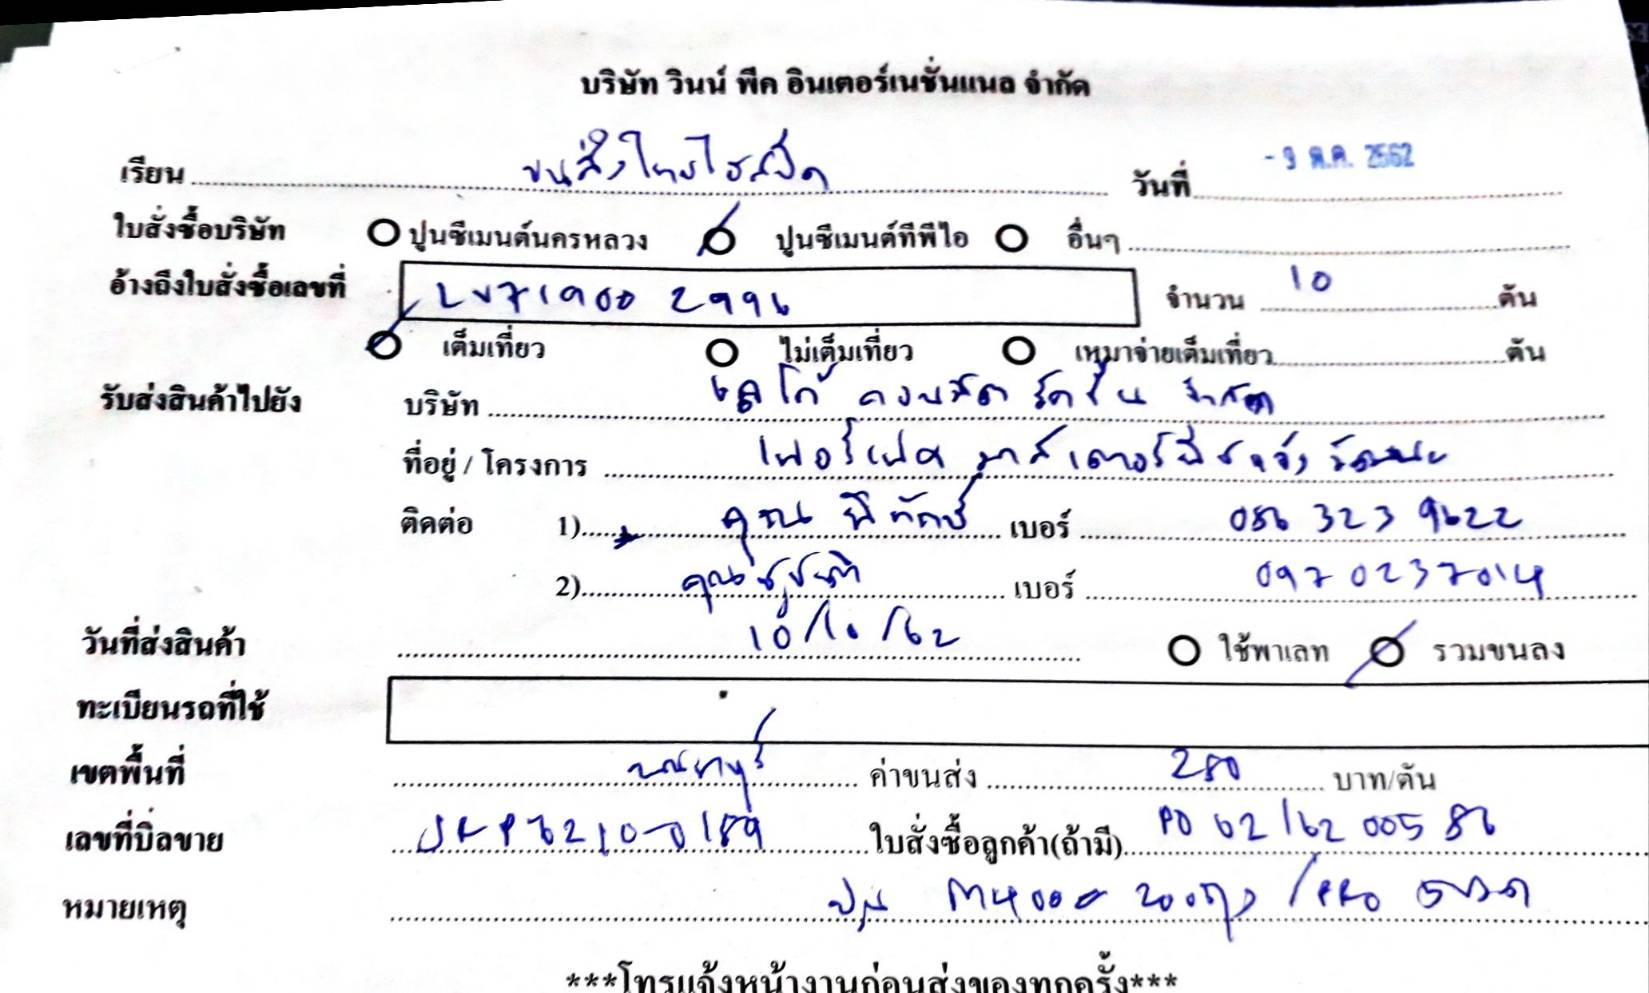 บริษัท วินน์ พีค อินเตอร์เนชั่นแนล จำกัด
เรียน ขนส่งไทยไรสปีด วันที่ - 9 ต.ค. 2562
ใบสั่งซื้อบริษัท ปูนซีเมนต์นครหลวง ปูนซีเมนต์ทีพีไอ อื่นๆ
อ้างถึงใบสั่งซื้อเลขที่ จำนวน 10 ตัน
เต็มเที่ยว ไม่เต็มเที่ยว เหมาจ่ายเต็มเที่ยว ตัน
รับส่งสินค้าไปยัง บริษัท คอนสตรัคชั่น จำกัด
ที่อยู่ / โครงการ เพอร์เฟค มาสเตอร์พีช แจ้งวัฒนะ
ติดต่อ 1) คุณ พิทักษ์ เบอร์ 086 323 9622
2) คุณชูชาติ เบอร์ 097 0237014
วันที่ส่งสินค้า 10/10/62 ใช้พาเลท รวมขนลง
ทะเบียนรถที่ใช้
เขตพื้นที่ นนทบุรี ค่าขนส่ง 280 บาท/ตัน
เลขที่บิลขาย ใบสั่งซื้อลูกค้า(ถ้ามี) PO 62/62 00586
หมายเหตุ ปูน M400 200ถุง
***โทรแจ้งหน้างานก่อนส่งของทุกครั้ง***